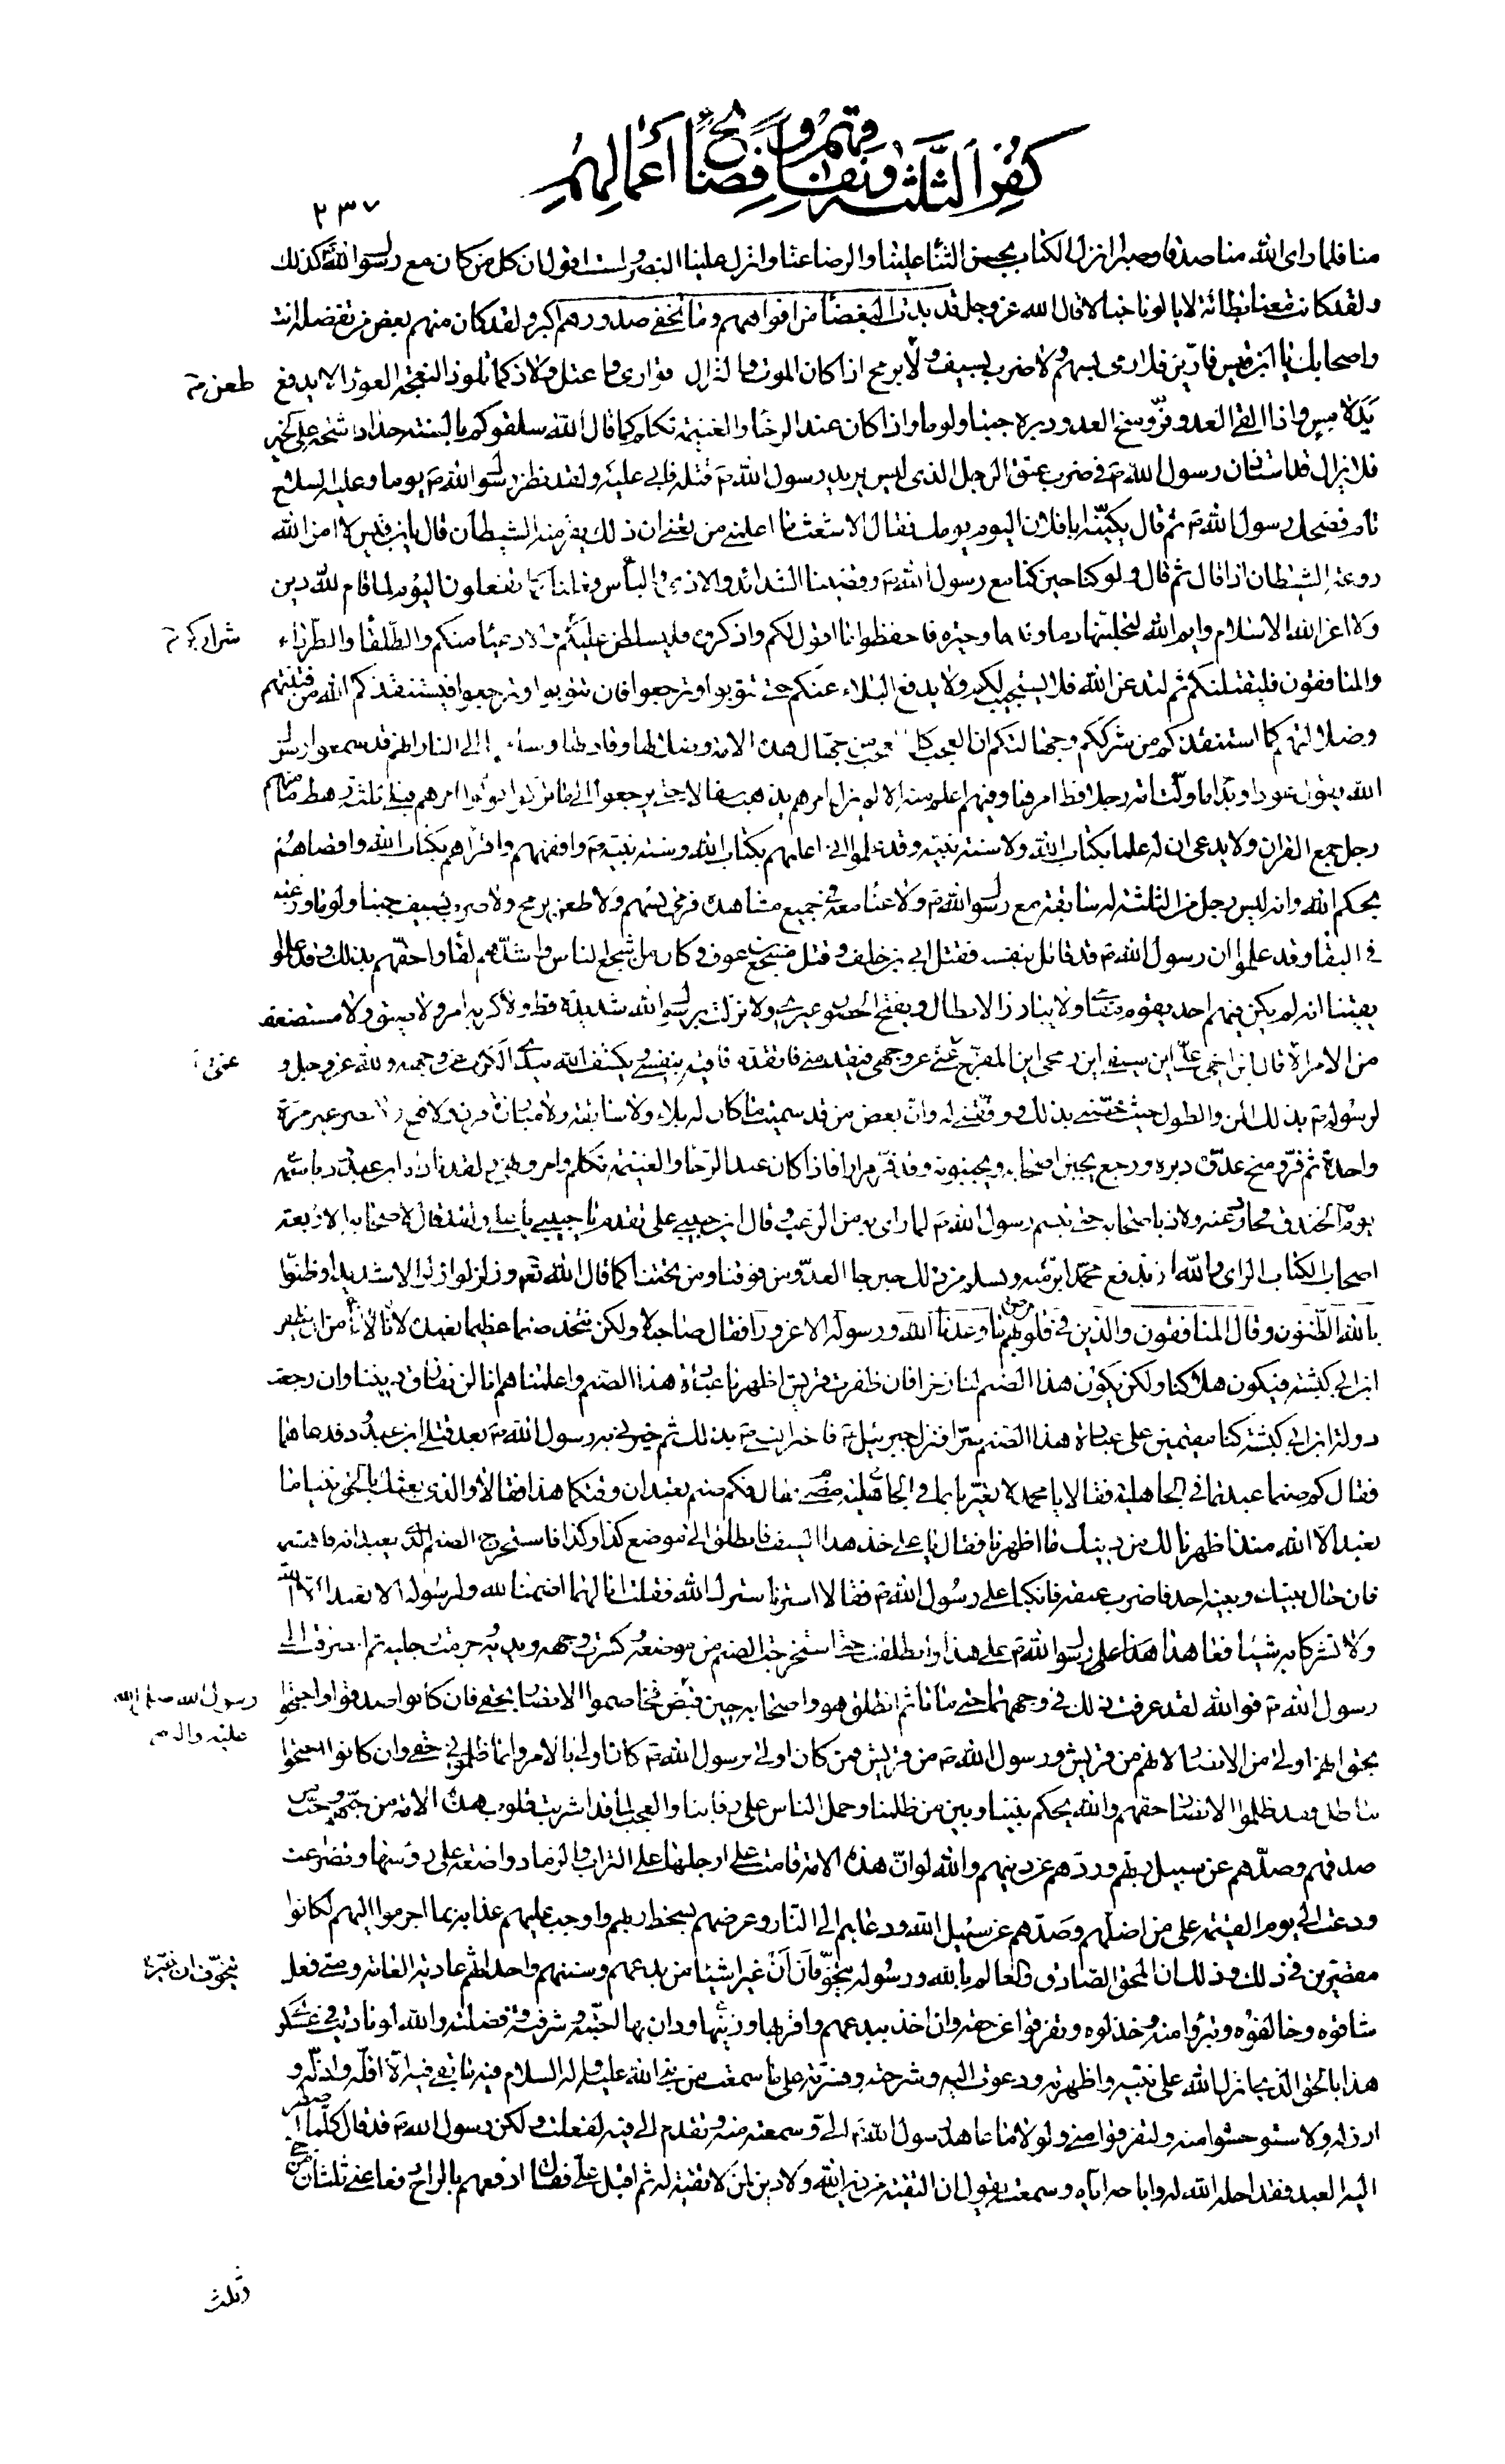 كفر الثلثة ونفاقهم وفضايح أعمالهم
٢٣٧
منا فلما راى الله منا صدقا وصبرا انزل الكتاب بحسن الثناء علينا والرضا عنا وانزل علينا النصر ولست اقول ان كل من كان مع رسول الله كذلك
ولقد كانت معنا بطانة لا يالونا خبالا قال الله عز وجل قد بدت البغضاء من افواههم وما تخفى صدورهم اكبر ولقد كان منهم بعض من تفضله انت
واصحابك يا ابن قيس فارين فلا رمى بسهم ولا ضرب بسيف ولا برمح اذا كان الموت والنزال توارى واعتل ولاذ كما تلوذ النعجة العوراء لا يدفع
طعن
يد لامس واذا القى العدو فر ومنح العدو دبره جبنا ولوما واذا كان عند الرخاء والغنيمة تكلم كما قال الله سلقوكم بالسنة حداد اشحة على الخير
فلا يزال قد استاذن رسول الله ص في ضرب عنق الرجل الذى ليس يريد رسول الله ص قتله فابى عليه ولقد نظر رسول الله ص يوما وعليه السلاح
تام فضحك رسول الله ص ثم قال يكنيه ابا فلان اليوم يومك فقال الاشعث ما اعلمنى من تعنى ان ذلك يفر منه الشيطان قال يا بن قيس لا امن الله
روعة الشيطان اذا قال ثم قال ولو كنا حين كنا مع رسول الله ص وتصيبنا الشدائد والاذى والباس فعلنا كما تفعلون اليوم لما قام لله دين
ولا اعز الله الاسلام وايم الله لتحلبنها دما وندما وحيرة فاحفظوا ما اقول لكم واذكروه فليسلطن عليكم والادعياء منكم والطلقاء والطرداء
شراركم
والمنافقون فليقتلنكم ثم لتدعن الله فلا يستجيب لكم ولا يدفع البلاء عنكم حتى تتوبوا وترجعوا فان تتوبوا وترجعوا فيستنقذكم الله من فتنتهم
وضلالتهم كما استنقذكم من شرككم وجهالتكم ان العجب كل العجب من جهال هذه الامة وضلالها وقادتها وساقتها الى النار انهم قد سمعوا رسول
الله يقول عودا وبدا ما ولت امة رجلا قط امرها وفيهم اعلم منه الا لم يزل امرهم يذهب سفالا حتى يرجعوا الى ما تركوا فولوا امرهم قبلى ثلثة رهط ما منهم
رجل جمع القران ولا يدعى ان له علما بكتاب الله ولا سنة نبيه وقد علموا انى اعلمهم بكتاب الله وسنة نبيه ص وافقههم واقراهم بكتاب الله واقضاهم
بحكم الله وانه ليس رجل من الثلثة له سابقة مع رسول الله ص ولا عناء معه في جميع مشاهده فرمى بسهم ولا طعن برمح ولا ضرب بسيف جبنا ولوما ورغبة
في البقاء وقد علموا ان رسول الله ص قد قاتل بنفسه فقتل ابى بن خلف وقتل مسجع بن عوف وكان من اشجع الناس واشدهم لقاء واحقهم بذلك وقد علموا
يقينا انه لم يكن فيهم احد يقوم مقامى ولا يبارز الابطال ويفتح الحصون غيرى ولا نزلت برسول الله شديدة قط ولا كربه امر ولا ضيق ولا مستصعب
من الامر الا قال اين اخى على اين سيفى اين رمحى اين المفرج غمى عن وجهى فيقدمنى فاتقدم فافديه بنفسى ويكشف الله بيدى الكرب عن وجهه ولله عز وجل و
عنى
لرسوله ص بذلك المن والطول حيث خصنى بذلك ووفقنى له وان بعض من قد سميت ما كان له بلاء ولا سابقة ولا مبارزة قرن ولا فتح ولا نصر غير مرة
واحدة ثم فر ومنح عدوه دبره ورجع يجبن اصحابه ويجبنونه وقد فر مرارا فاذا كان عند الرخاء والغنيمة تكلم وامر ونهى لقد ناداه ابن عبد ود باسمه
يوم الخندق فحاد عنه ولاذ باصحابه حتى تبسم رسول الله ص لما راى به من الرعب وقال اين حبيبى على تقدم يا حبيبى يا على ولقد قال لاصحابه الاربعة
اصحاب الكتاب الراى والله ان ندفع محمدا برمته ونسلم من ذلك حين جاء العدو من فوقنا ومن تحتنا كما قال الله تعم وزلزلوا زلزالا شديدا وظنوا
بالله الظنون وقال المنافقون والذين في قلوبهم مرض ما وعدنا الله ورسوله الا غرورا فقال صاحبه لا ولكن نتخذ صنما عظيما نعبده لانا لا نامن ان يظفر
ابن ابى كبشة فيكون هلاكنا ولكن يكون هذا الصنم لنا ذخرا فان ظفرت قريش اظهرنا عبادة هذا الصنم واعلمناهم انا لن نفارق ديننا وان رجعت
دولة ابن ابى كبشة كنا مقيمين على عبادة هذا الصنم سرا فنزل جبرئيل ع فاخبر النبى ص بذلك ثم خبرنى به رسول الله ص بعد قتلى ابن عبد ود فدعاهما
فقال كم صنما عبدتما في الجاهلية فقالا يا محمد لا تعيرنا بما مضى في الجاهلية فقال فكم صنم تعبدان وقتكما هذا فقالا والذى بعثك بالحق نبيا ما
نعبد الا الله منذ اظهرنا لك من دينك ما اظهرنا فقال يا على خذ هذا السيف فانطلق الى موضع كذا وكذا فاستخرج الصنم الذى يعبدانه فاهشمه
فان حال بينك وبينه احد فاضرب عنقه فانكبا على رسول الله ص فقالا استرنا سترك الله فقلت انا لهما اضمنا لله ولرسوله الا تعبدا الا الله
ولا تشركا به شيئا فعاهدا على رسول الله ص على هذا وانطلقت حتى استخرجت الصنم من موضعه وكسرت وجهه ويديه وجزمت رجليه ثم انصرفت الى
رسول الله ص فوالله لقد عرفت ذلك في وجههما حتى ماتا ثم انطلق هو واصحابه حين قبض فخاصموا الانصار بحقى فان كانوا صدقوا واحتجوا
رسول الله صلى الله
عليه واله
بحق انهم اولى من الانصار لانهم من قريش ورسول الله ص من قريش فمن كان اولى برسول الله ص كان اولى بالامر وانما ظلمونى حقى وان كانوا احتجوا
بباطل فقد ظلموا الانصار حقهم والله يحكم بيننا وبين من ظلمنا وحمل الناس على رقابنا والعجب لما قد اشربت قلوب هذه الامة من حبهم وحب من
صدقهم وصدهم عن سبيل ربهم وردهم عن دينهم والله لو ان هذه الامة قامت على ارجلها على التراب والرماد واضعة على رؤسها وتضرعت
ودعت الى يوم القيمة على من اضلهم وصدهم عن سبيل الله ودعاهم الى النار وعرضهم لسخط ربهم واوجب عليهم عذابه بما اجرموا اليهم لكانوا
مقصرين في ذلك وذلك ان المحق الصادق والعالم بالله ورسوله يتخوفان ان غيرا شيئا من بدعهم وسننهم واحداثهم عادية العامة ومتى فعل
يتخوف ان غير
شاقوه وخالفوه وتبرؤا منه وخذلوه وتفرقوا عن حقه وان اخذ ببدعهم واقر بها وزينها ودان بها احبته وشرفته وفضلته والله لو ناديت في عسكرى
هذا بالحق الذى انزل الله على نبيه واظهرته ودعوت اليه وشرحته وفسرته على ما سمعت من نبى الله عليه واله السلام فيه ما بقى فيه الا اقله واذله و
ارذله ولاستوحشوا منه ولتفرقوا منى ولولا ما عاهد رسول الله ص الى وسمعته منه وتقدم الى فيه لفعلت ولكن رسول الله ص قد قال كلما اضطر
اليه العبد فقد احله الله له واباحه اياه وسمعته يقول ان التقية من دين الله ولا دين لمن لا تقية له ثم اقبل على فقال ادفعهم بالراح دفعا عنى ثلثان من حى
وثلث